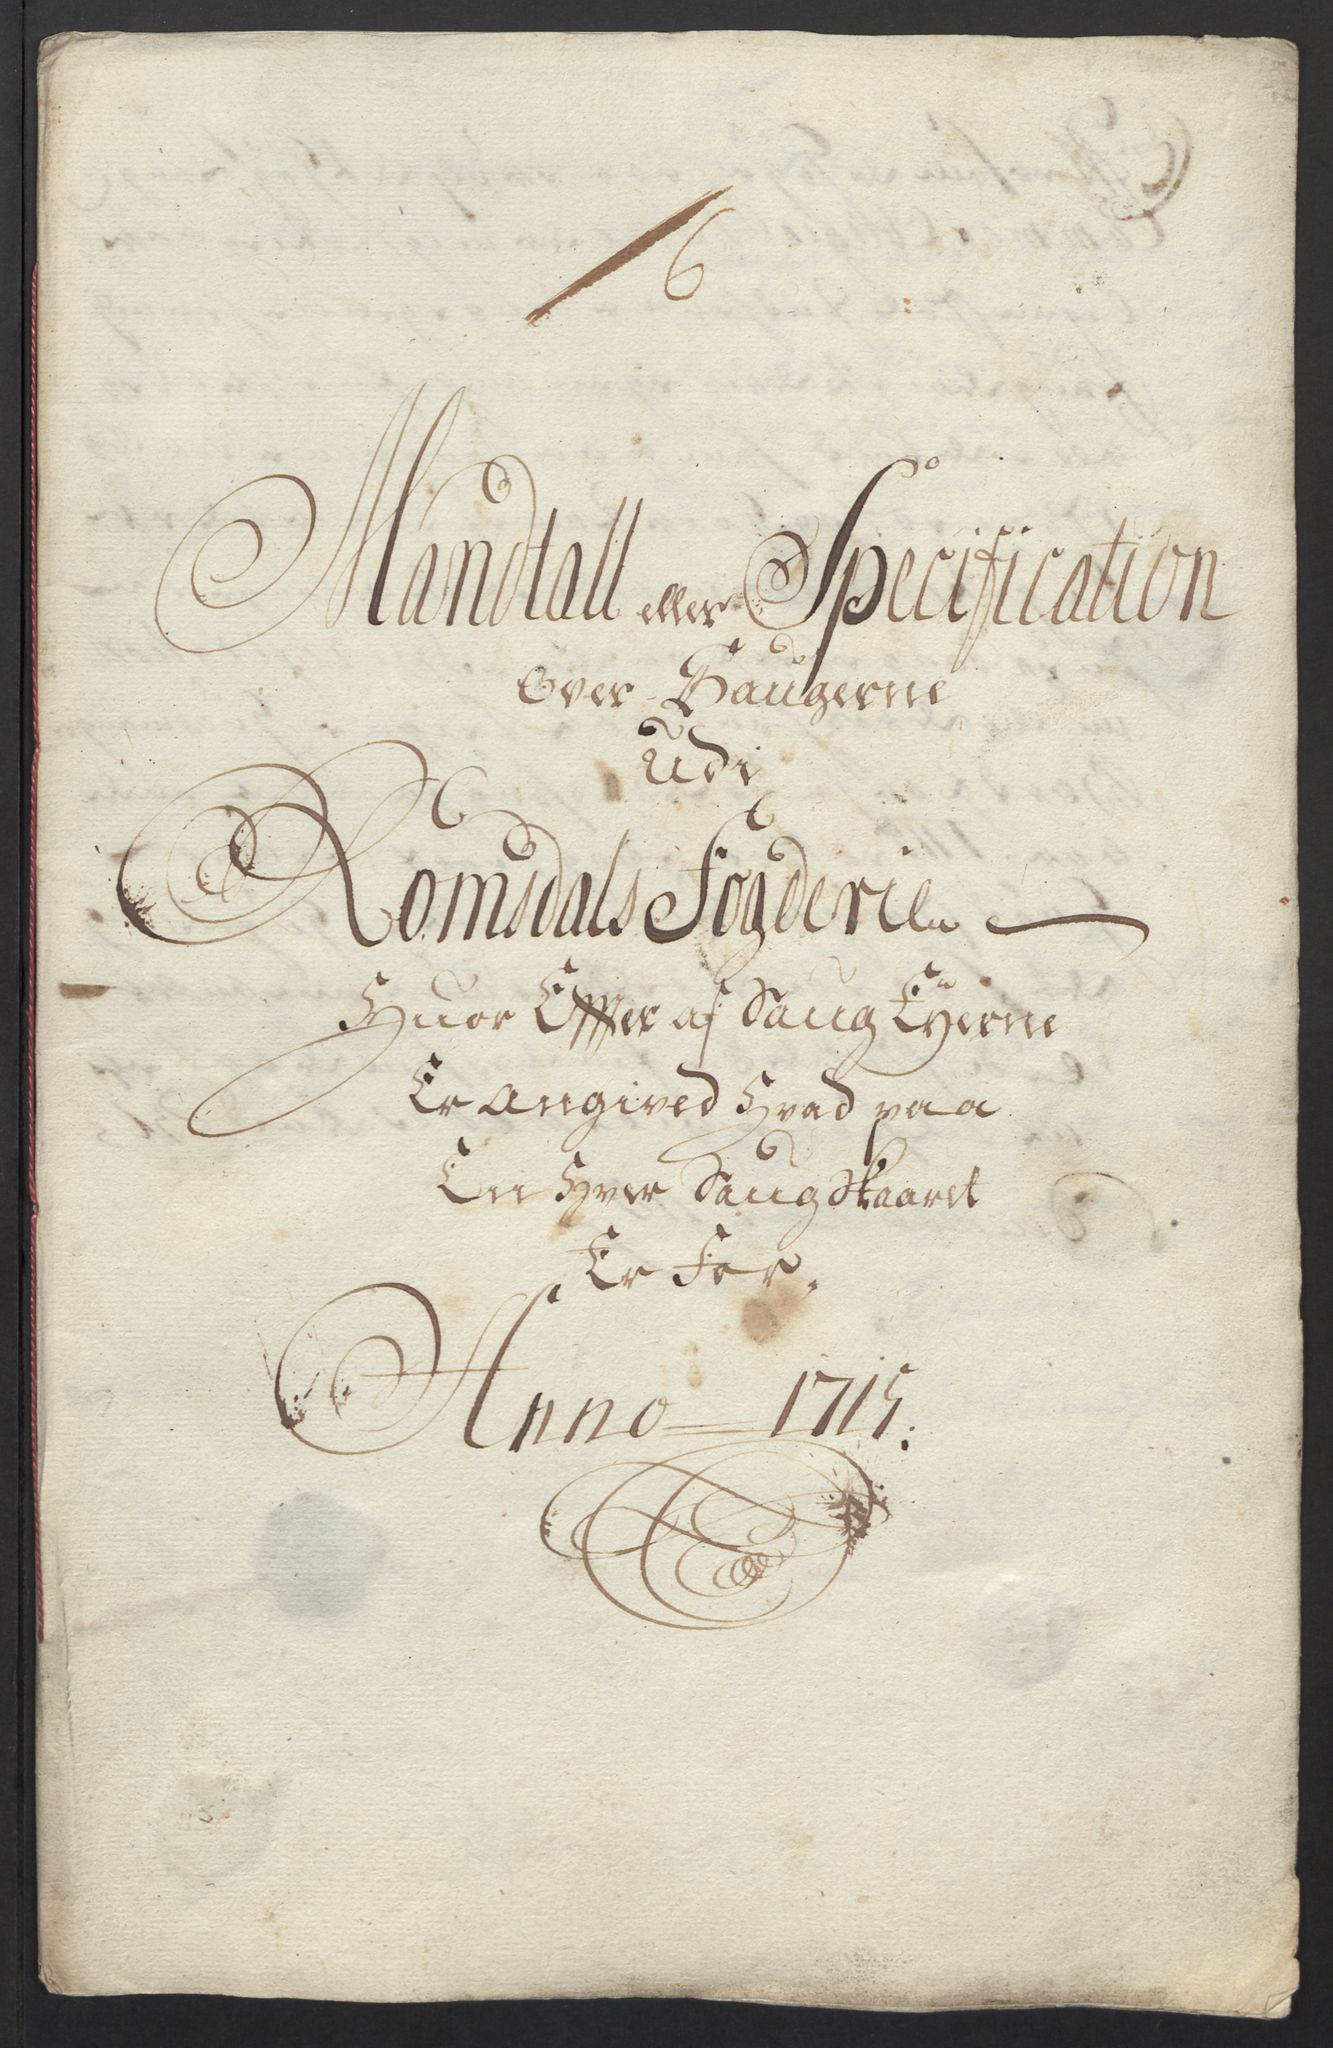 6
Mandtall eller Specification
Over Saugerne
Udi
Romsdals Fogderie
Huor Effter af Saug Eyerne
Er Angived Hvad paa
En Hver Saug Skaaret
Er For.
Anno 1715.